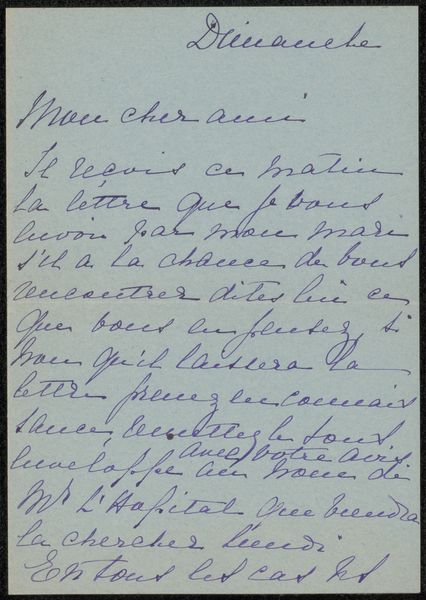 Dimanche
Mon cher ami
Je reçois ce matin
la lettre que je vous
envoie par mon mari
s'il a la chance de vous
rencontrer dites lui ce
que vous en pensez, si
non qu'il laissera la
lettre prenez en connais
sance, remettez la sous
enveloppe avec votre avis au nom de
Mr L'Hopital que viendra
la chercher Lundi
En tous les cas